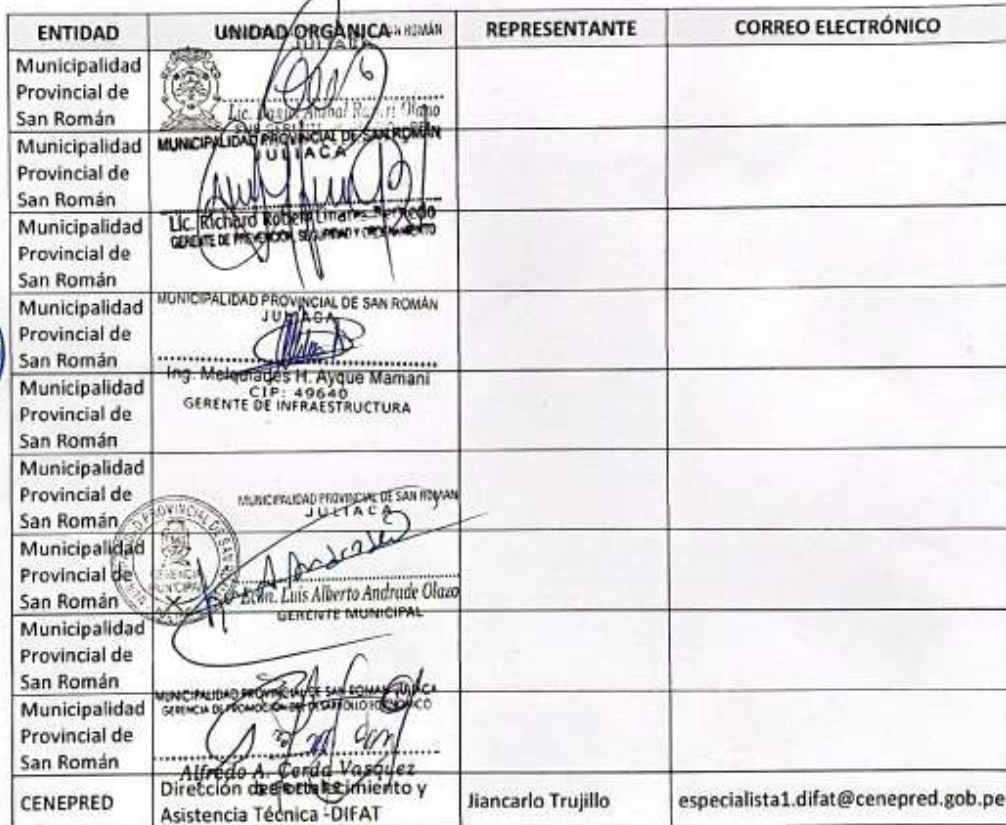 ENTIDAD UNIDAD ORGÁNICA REPRESENTANTE CORREO ELECTRÓNICO
SAN ROMÁN
JULIACA
Municipalidad
Provincial de
San Román
Lic.
Municipalidad
Provincial de
San Román
MUNICIPALIDAD PROVINCIAL DE SAN ROMÁN
JULIACA
Lic. Richard Linares
GERENTE DE PREVENCIÓN, SEGURIDAD Y ORDENAMIENTO
Municipalidad
Provincial de
San Román
Municipalidad
Provincial de
San Román
MUNICIPALIDAD PROVINCIAL DE SAN ROMÁN
JULIACA
Ing. Melquiades H. Ayque Mamani
CIP: 49640
GERENTE DE INFRAESTRUCTURA
Municipalidad
Provincial de
San Román
Municipalidad
Provincial de
San Román
MUNICIPALIDAD PROVINCIAL DE SAN ROMÁN
JULIACA
Municipalidad
Provincial de
San Román
A. Andrade
Econ. Luis Alberto Andrade Olazo
GERENTE MUNICIPAL
Municipalidad
Provincial de
San Román
Municipalidad
Provincial de
San Román
MUNICIPALIDAD PROVINCIAL DE SAN ROMAN JULIACA
GERENCIA DE PROMOCIÓN DEL DESARROLLO ECONÓMICO
Alfredo A. Cerda Vasquez
CENEPRED Dirección de Fortalecimiento y Jiancarlo Trujillo especialista1.difat@cenepred.gob.pe
Asistencia Técnica -DIFAT